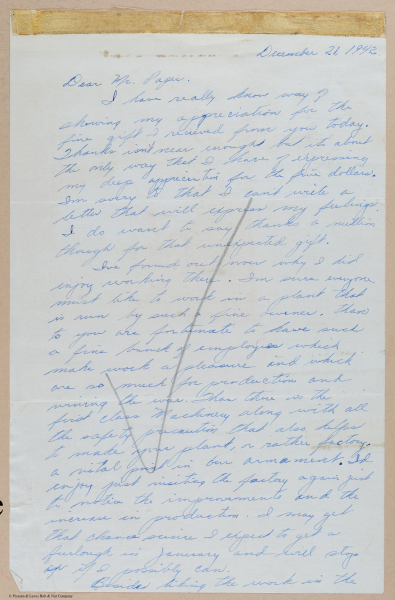 December 21 1942
Dear Mr. Pager.
I have really know way of
showing my appreciation for the
fine gift I recieved from you today.
Thanks isn't near enough but its about
the only way that I have of expressing
my deep appreciation for the five dollars.
I'm sorry to that I can't write a
letter that will express my feelings.
I do want to say thanks a million
though for that unexpected gift.
I've found out now why I did
enjoy working there. I'm sure everyone
must like to work in a plant that
is run by such a fine owner. Then
to you are fortunate to have such
a fine bunch of employees which
make work a pleasure and which
are so much for production and
wining the war. Then there is the
first class Machinery along with all
the safety precaution that also helps
to make your plant, or rather factory.
a vital part in our armament. I'd
enjoy just visiting the factory again just
to notice the improvements and the
increase in production. I may get
that chance since I expect to get a
furlough in January and will stop
if I possibly can.
Beside liking the work in the
© Pioneer & Lewis Bolt & Nut Company